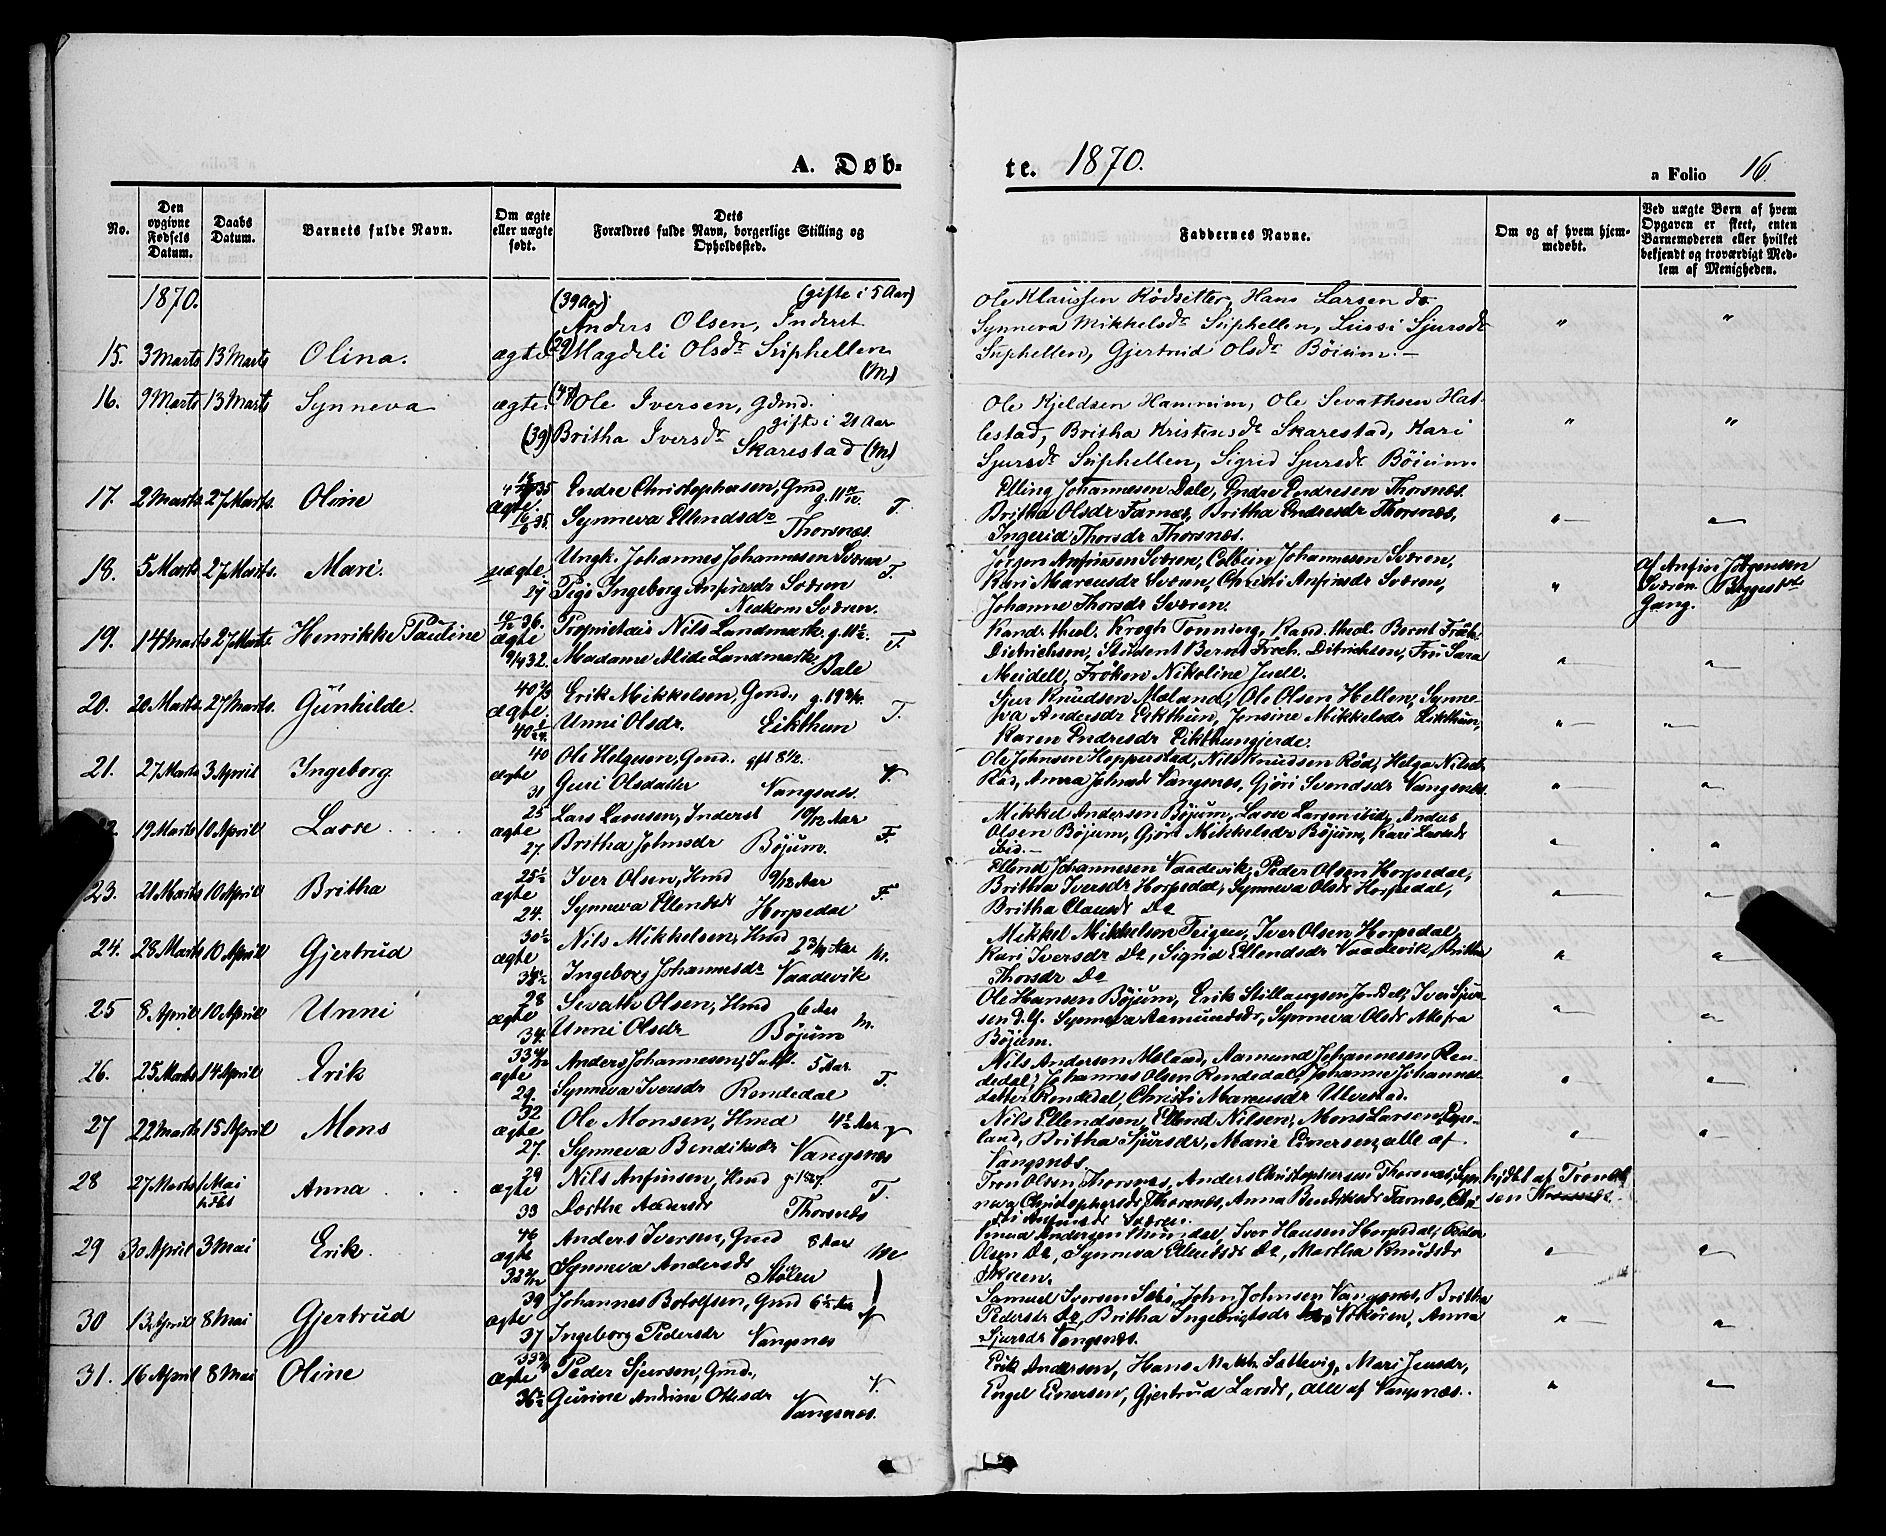 A. Døb-
te. 1870.
a Folio 16.
No.
Den opgivne Fødsels Datum.
Daabs Datum.
Barnets fulde Navn.
Om ægte eller uægte født.
Dets Forældres fulde Navn, borgerlige Stilling og Opholdssted.
Faddernes Navne.
Om og af hvem hjemmedøbt.
Ved uægte Børn af hvem Opgaven er skeet, enten Barnemoderen eller hvilket bekjendt og troværdigt Medlem af Menigheden.
1870.
(39 Aar) (gifte i 5 Aar)
Anders Olsen, Inderst
15. 3 Marts 13 Marts Olina. ægte (29) Magdeli Olsdr Suphellen
(M)
Ole Klaussen Rødseter, Hans Larsen do
Synneva Mikkelsdr Suphellen, Lussi Sjursdr
Suphellen, Gjertrud Olsdr Bøium.
16. 9 Marts 13 Marts Synneva ægte (47) Ole Iversen, Gdmd.
gifte i 21 Aar
(39) Britha Iversdr
Skarestad (M)
Ole Kjeldsen Hamrum, Ole Sevathsen Hat-
lestad, Britha Kristensdr Skarestad, Kari
Sjursdr Suphellen, Sigrid Sjursdr Bøium.
17. 2 Marts 27 Marts. Oline ægte. Endre Christophersen, Gmd
Synneva Ellendsdr
Thorsnæs. T.
Elling Johannesen Dale, Endre Endresen Thorsnæs.
Britha Olsdr Farnes, Britha Endresdr Thorsnæs,
Ingerid Thorsdr Thorsnæs.
18. 5 Marts 27 Marts. Mari. uægte Ungk. Johannes Johannesen Sværen T.
27 Pige Ingeborg Anfinsdr Sværen
Nedkom Sværen.
Jørgen Anfinsen Sværen, Colbein Johannesen Sværen,
Kari Marcusdr Sværen, Christi Anfinsdr Sværen,
Johanne Thorsdr Sværen.
Af Anfin Jørgensen
Sværen.
Gang.
19. 14 Marts 27 Marts Henrikke Pauline ægte Proprietair Nils Landmark.
Madame Mide Landmark
Bale T.
Kand. theol. Krogh Tonning, Kand. theol. Bernt
Ditrichsen, Student Bernt Ditrichsen, Fru Sara
Meidell, Frøken Nikoline Juell.
20. 20 Marts. 27 Marts. Gunhilde. ægte Erik Mikkelsen, Gmd.
Unni Olsdr. Eikthun T.
Sjur Knudsen Mæland, Ole Olsen Hellen, Synne-
va Andersdr Eikthun, Jensine Mikkelsdr Eikthun,
Karen Endresdr Eikthungjerde.
21. 27 Marts 3 April Ingeborg ægte 40 Ole Helgesen, Gmd. gft 8½.
31 Guri Olsdatter Vangsnes. V.
Ole Johnsen Hopperstad, Nils Knudsen Rød, Helga Nilsdr
Rød, Anna Johnsdr Vangsnes, Gjøri Svendsdr Vangsnes.
19 Marts 10 April Lasse ægte 25 Lars Lassesen, Inderst 10/12 Aar
27. Britha Johnsdr Bøjum. F.
Mikkel Andersen Bøjum, Lasse Larsen ibid, Anders
Olsen Bøjum, Gjøri Mikkelsdr Bøjum, Kari Lassedr
ibid.
23. 21 Marts 10 April Britha ægte 25½ Iver Olsen, Hmd 9/12 Aar
24. Synneva Ellensdr Horpedal F.
Ellend Johannesen Vaadevik, Peder Olsen Horpedal,
Britha Iversdr Horpedal, Synneva Olsdr Horpedal,
Britha Clausdr Do
24. 28 Marts 10 April Gjertrud ægte 30½ Nils Mikkelsen, Hmd Aar
Ingeborg Johannesdr Vaadevik M.
Mikkel Mikkelsen Teigen, Iver Olsen Horpedal,
Kari Iversdr Do, Sigrid Ellendsdr Vaadevik, Britha
Thorsdr Do
25 8 April 10 April Unni ægte 28 Sevath Olsen, Hmd 6 Aar
34. Unni Olsdr Bøjum M.
Ole Hansen Bøjum, Erik Stillaugsen Jordal, Iver Sjur-
sen d.Y. Synneva Aamundsdr, Synneva Olsdr Alle fra
Bøjum.
26. 25 Marts 14 April Erik ægte Anders Johannesen, 5 Aar.
29. Synneva Iversdr Rendedal T.
Nils Andersen Mæland, Aamund Johannesen Ren-
dedal, Johannes Olsen Rendedal, Johanne Johannes-
datter Rendedal, Christi Marcusdr Ulvestad.
27 22 Marts 15 April Mons ægte 32 Ole Monsen, Hmd 4½ Aar
27. Synneva Bendiksdr Vangsnes V
Nils Ellendsen, Ellend Nilsen, Mons Larsen Espe-
land, Britha Sjursdr, Marie Einersen, alle af
Vangsnes.
28 27 Marts 1 Mai Anna ægte 29 Nils Anfinsen, Hmd
33 Dorthe Andersdr Thorsnes T.
Tron Olsen Thorsnes, Anders Christophersen Thorsnæs, Syn-
neva Christophersdr Thorsnes, Anna Bendiksdr Farnes, Chri-
sti Anfinsdr Sværen.
hjdbt af Tron Ol-
sen
29 30 April 3 Mai Erik. ægte 46 Anders Iversen, Gmd 8 Aar
Synneva Andersdr Stølen M
Andersen Mundal, Iver Hansen Horpedal, Peder
Olsen Do, Synneva Ellendsdr Do, Martha Knudsdr
Skreen.
30 13 April 8 Mai Gjertrud ægte 39 Johannes Botolfsen, Gmd 6½ Aar
37 Ingeborg Pedersdr Vangsnes V
Samuel Iversen Sæbi, John Johnsen Vangsnes, Britha
Pedersdr Do, Britha Ingebrigtsdr Anna
Sjursdr Vangsnes.
31. 16 April 8 Mai Oline ægte Peder Sjursen, Gmd.
36½ Gurine Andrine Olesdr
Vangsnæs. V.
Erik Andersen, Hans Sattevig, Mari Jensdr,
Engel Einersen, Gjertrud Larsdr, alle af Vangsnæs.